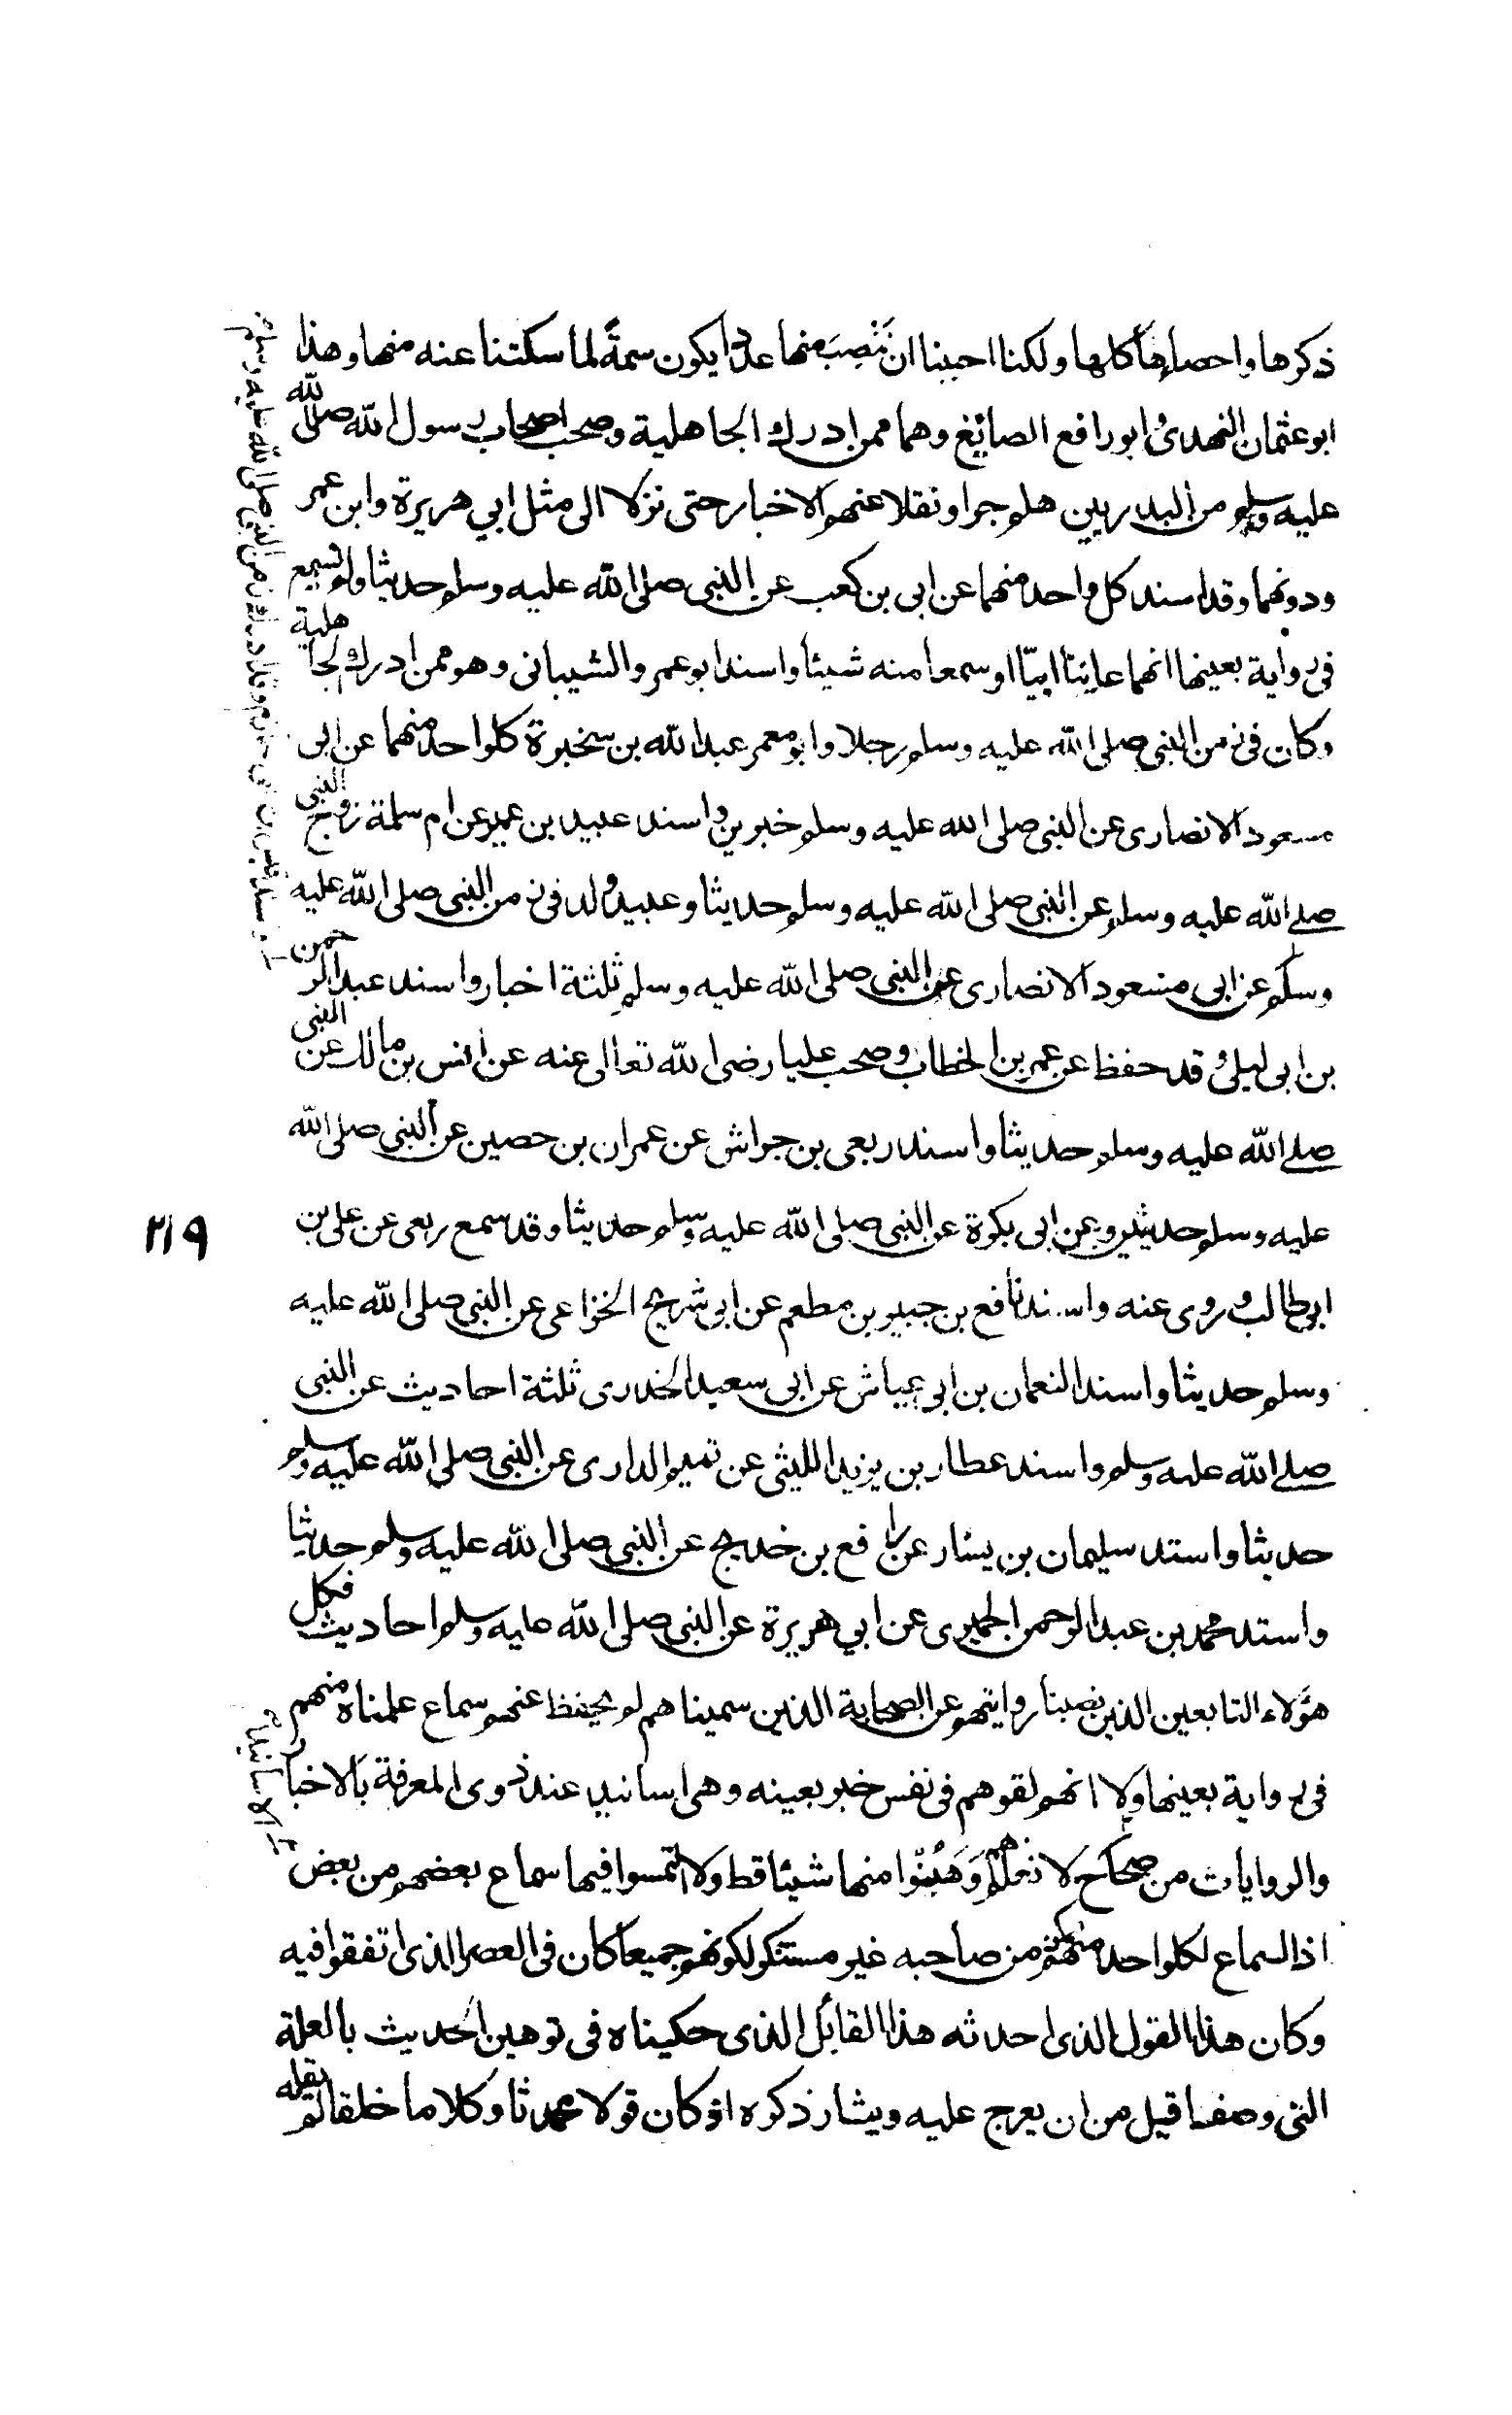 ذكرها واحصاءها كلها ولكنا احببنا ان نَنْصِبَ منها عددا يكون سمةً لما سكتنا عنه منها وهذا
ابو عثمان النهدى وابو رافع الصائغ وهما ممن ادرك الجاهلية وصحب اصحاب رسول الله صلى الله
عليه وسلم من البدريين هلم جرا ونقلا عنهم الاخبار حتى نزلا الى مثل ابي هريرة وابن عمر
ودونهما وقد اسند كل واحد منهما عن ابى بن كعب عن النبى صلى الله عليه وسلم حديثا ولم نسمع
فى رواية بعينها انهما عاينا ابيّا او سمعا منه شيئا واسند ابو عمرو الشيبانى وهو ممن ادرك الجاهلية
وكان فى زمن النبى صلى الله عليه وسلم رجلا وابو معمر عبد الله بن سخبرة كل واحد منهما عن ابى
مسعود الانصارى عن النبى صلى الله عليه وسلم خبرين واسند عبيد بن عمير عن ام سلمة زوج النبى
صلى الله عليه وسلم عن النبى صلى الله عليه وسلم حديثا وعبيد ولد فى زمن النبى صلى الله عليه
وسلم عن ابى مسعود الانصارى عن النبى صلى الله عليه وسلم ثلثة اخبار واسند عبد الرحمن
بن ابى ليلى وقد حفظ عن عمر بن الخطاب وصحب عليا رضى الله تعالى عنه عن انس بن مالك عن النبى
صلى الله عليه وسلم حديثا واسند ربعى بن حراش عن عمران بن حصين عن النبى صلى الله
عليه وسلم حديثين وعن ابى بكرة عن النبى صلى الله عليه وسلم حديثا وقد سمع ربعى عن على بن
٢١٩
ابى طالب وروى عنه واسند نافع بن جبير بن مطعم عن ابى شريح الخزاعى عن النبى صلى الله عليه
وسلم حديثا واسند النعمان بن ابى عياش عن ابى سعيد الخدرى ثلثة احاديث عن النبى
صلى الله عليه وسلم واسند عطاء بن يزيد الليثى عن تميم الدارى عن النبى صلى الله عليه وسلم
حديثا واسند سليمان بن يسار عن رافع بن خديج عن النبى صلى الله عليه وسلم حديثا
واسند محمد بن عبد الرحمن الحميرى عن ابي هريرة عن النبى صلى الله عليه وسلم احاديث فكل
هؤلاء التابعين الذين نصبنا روايتهم عن الصحابة الذين سميناهم لم يحفظ عنهم سماع علمناه منهم
فى رواية بعينها ولا انهم لقوهم فى نفس خبر بعينه وهى اسانيد عند ذوى المعرفة بالاخبار
والروايات من صحاح لا نعلمهم وَهَّنوا منها شيئا قط ولا التمسوا فيها سماع بعضهم من بعض
اذ السماع لكل واحد منهم ممكن من صاحبه غير مستنكر لكونهم جميعا كان فى العصر الذى اتفقوا فيه
وكان هذا القول الذى احدثه هذا القائل الذى حكيناه فى توهين الحديث بالعلة
التى وصف اقل من ان يعرج عليه ويثار ذكره اذ كان قولا محدثا وكلاما خلفا لم يقله